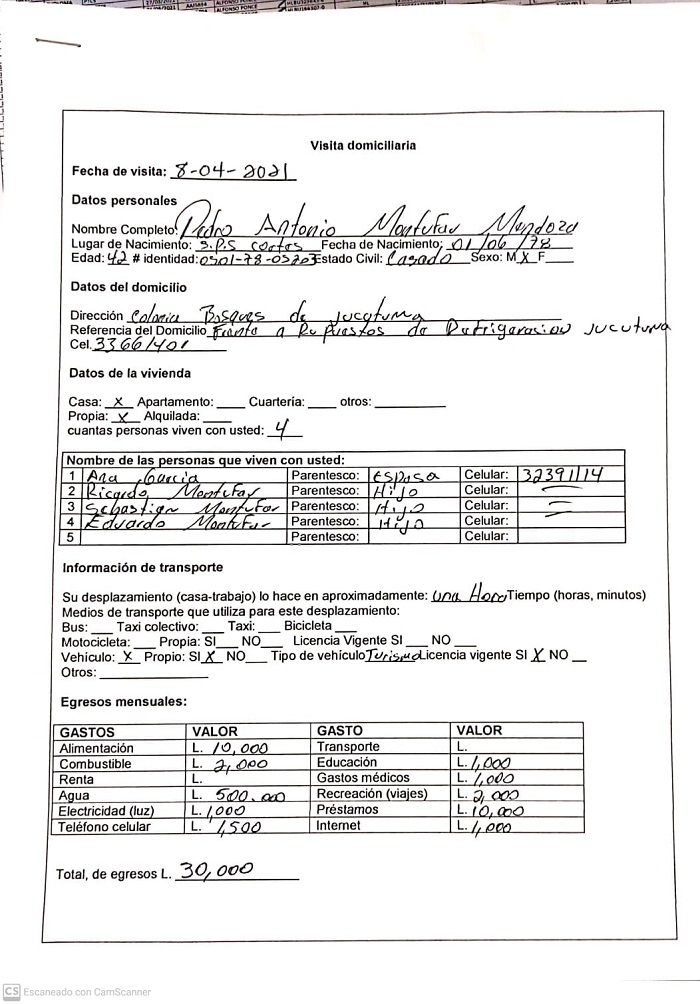 Visita domiciliaria
Fecha de visita: 8-04-2021
Datos personales
Nombre Completo: Pedro Antonio Montufar Mendoza
Lugar de Nacimiento: S.P.S cortes Fecha de Nacimiento; 01/06/78
Edad: 42 # identidad: 0501-78-05203 Estado Civil: Casado Sexo: M X F___
Datos del domicilio
Dirección Colonia Bosques de jucutuma
Referencia del Domicilio Frente a Repuestos de Refrigeracion jucutuma
Cel. 33661401
Datos de la vivienda
Casa: X Apartamento: ____ Cuartería: ____ otros: __________
Propia: X Alquilada: ____
cuantas personas viven con usted: 4
Nombre de las personas que viven con usted:
1 Ana Garcia Parentesco: Esposa Celular: 32391114
2 Ricardo Montufar Parentesco: Hijo Celular: —
3 Sebastian Montufar Parentesco: Hijo Celular: —
4 Eduardo Montufar Parentesco: Hijo Celular: —
5 Parentesco: Celular:
Información de transporte
Su desplazamiento (casa-trabajo) lo hace en aproximadamente: una Hora Tiempo (horas, minutos)
Medios de transporte que utiliza para este desplazamiento:
Bus: ___ Taxi colectivo: ___ Taxi: ___ Bicicleta ___
Motocicleta: ___ Propia: SI___ NO___ Licencia Vigente SI ___ NO ___
Vehículo: X Propio: SI X NO___ Tipo de vehículo Turismo Licencia vigente SI X NO __
Otros: ______________
Egresos mensuales:
GASTOS VALOR GASTO VALOR
Alimentación L. 10,000 Transporte L.
Combustible L. 2,000 Educación L. 1,000
Renta L. Gastos médicos L. 1,000
Agua L. 500.00 Recreación (viajes) L. 2,000
Electricidad (luz) L. 1,000 Préstamos L. 10,000
Teléfono celular L. 1,500 Internet L. 1,000
Total, de egresos L. 30,000
CS Escaneado con CamScanner